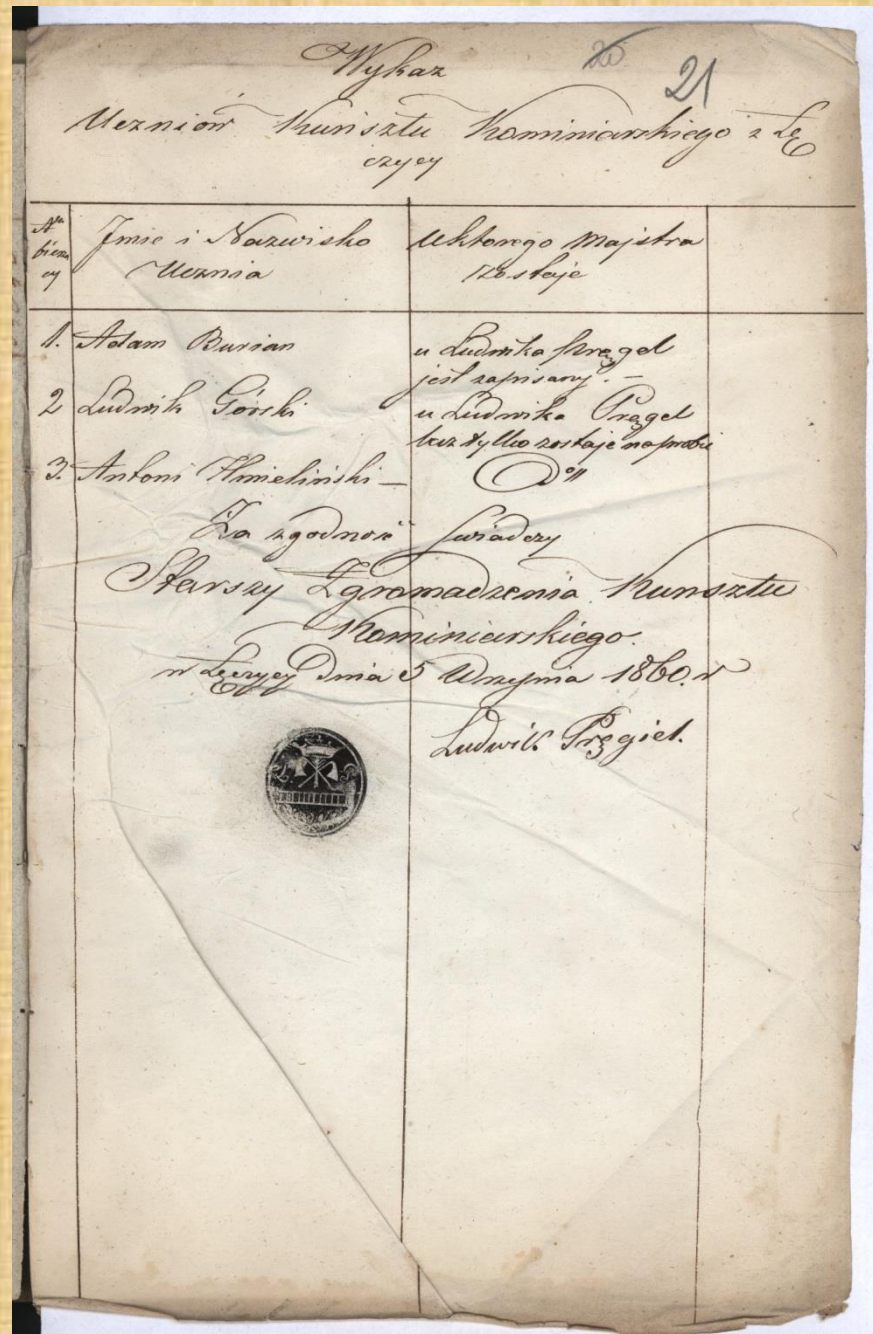 Wykaz
20 21
Uczniów Kunsztu Kominiarskiego z Łę
czycy
Nr bieżą cy
Jmie i Nazwisko
Ucznia
Uktorego Majstra
zostaje
1. Adam Burian
u Ludwika Pręgel
jest zapisany. —
2 Ludwik Górski
u Ludwika Pręgel
lecz tylko zostaje na probie
3. Antoni Hmieliński —
Do //
Za zgodność swiadczy
Starszy Zgromadzenia Kunsztu
Kominiarskiego.
w Łęczycy Dnia 5 1860. r
Ludwik Pręgiel.